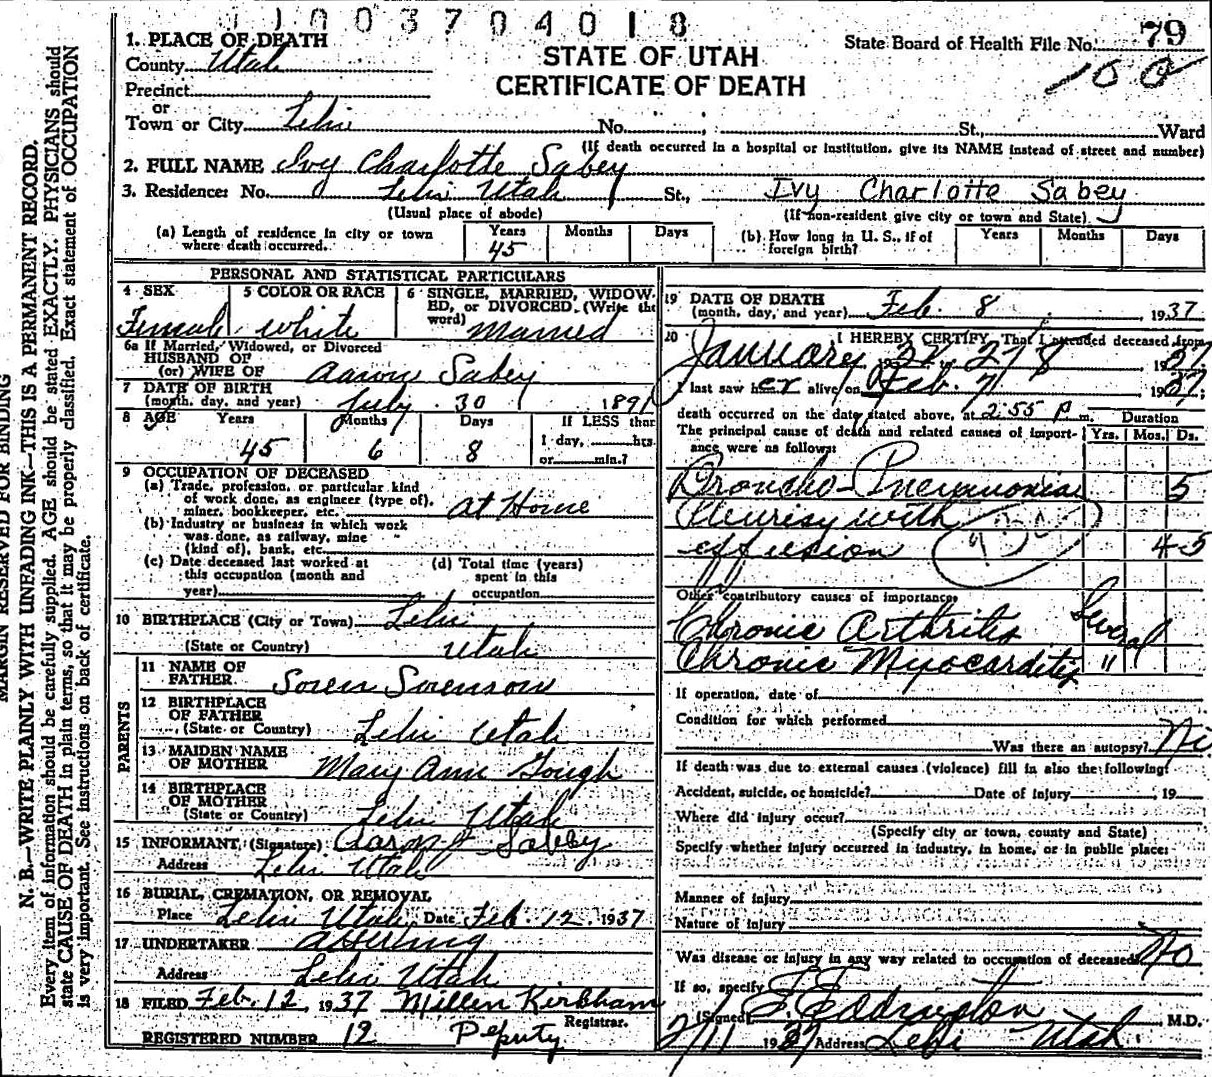 J100370401 8
1. PLACE OF DEATH
County Utah
Precinct
or
Town or City Lehi No. St., Ward
STATE OF UTAH
CERTIFICATE OF DEATH
State Board of Health File No. 79
100
(If death occurred in a hospital or institution, give its NAME instead of street and number)
2. FULL NAME Ivy Charlotte Sabey
3. Residence: No. Lehi Utah St., Ivy Charlotte Sabey
(Usual place of abode) (If non-resident give city or town and State)
(a) Length of residence in city or town where death occurred. Years 45 Months Days
(b) How long in U. S., if of foreign birth? Years Months Days
PERSONAL AND STATISTICAL PARTICULARS
4 SEX Female
5 COLOR OR RACE white
6 SINGLE, MARRIED, WIDOWED, or DIVORCED (Write the word) Married
6a If Married, Widowed, or Divorced
HUSBAND OF
(or) WIFE OF Aaron Sabey
7 DATE OF BIRTH
(month, day, and year) July 30 1891
8 AGE Years 45 Months 6 Days 8 If LESS than
1 day, hrs.
or min.?
9 OCCUPATION OF DECEASED
(a) Trade, profession, or particular kind
of work done, as engineer (type of),
miner, bookkeeper, etc. at Home
(b) Industry or business in which work "
was done, as railway, mine
(kind of), bank, etc.
(c) Date deceased last worked at
this occupation (month and
year)
(d) Total time (years)
spent in this
occupation
10 BIRTHPLACE (City or Town) Lehi
(State or Country) Utah
PARENTS
11 NAME OF
FATHER Soren Sorenson
12 BIRTHPLACE
OF FATHER
(State or Country) Lehi Utah
13 MAIDEN NAME
OF MOTHER Mary Ann Gough
14 BIRTHPLACE
OF MOTHER
(State or Country) Lehi Utah
15 INFORMANT, (Signature) Aaron J Sabey
Address Lehi Utah
16 BURIAL, CREMATION, OR REMOVAL
Place Lehi Utah Date Feb. 12 1937
17 UNDERTAKER
Address Lehi Utah
18 FILED Feb. 12, 1937 Millen Kirkham
Registrar.
REGISTERED NUMBER 12 Deputy
19 DATE OF DEATH
(month, day, and year) Feb. 8 1937
20 I HEREBY CERTIFY, That I attended deceased from
January 1937
I last saw her alive on Feb. 7 1937;
death occurred on the date stated above, at 2:55 P m.
The principal cause of death and related causes of importance were as follows:
Duration
Yrs. Mos. Ds.
Broncho-Pneumonia 5
Pleurisy with
effusion 45
Other contributory causes of importance:
Chronic Arthritis Several
Chronic Myocarditis "
If operation, date of
Condition for which performed
Was there an autopsy? No
If death was due to external causes (violence) fill in also the following:
Accident, suicide, or homicide? Date of injury 19
Where did injury occur?
(Specify city or town, county and State)
Specify whether injury occurred in industry, in home, or in public place:
Manner of injury
Nature of injury
Was disease or injury in any way related to occupation of deceased? No
If so, specify
(Signed) F. Eddington, M.D.
2/11 1937 Address Lehi Utah
MARGIN RESERVED FOR BINDING
N. B.—WRITE PLAINLY WITH UNFADING INK—THIS IS A PERMANENT RECORD.
Every item of information should be carefully supplied. AGE should be stated EXACTLY. PHYSICIANS should
state CAUSE OF DEATH in plain terms, so that it may be properly classified. Exact statement of OCCUPATION
is very important. See instructions on back of certificate.